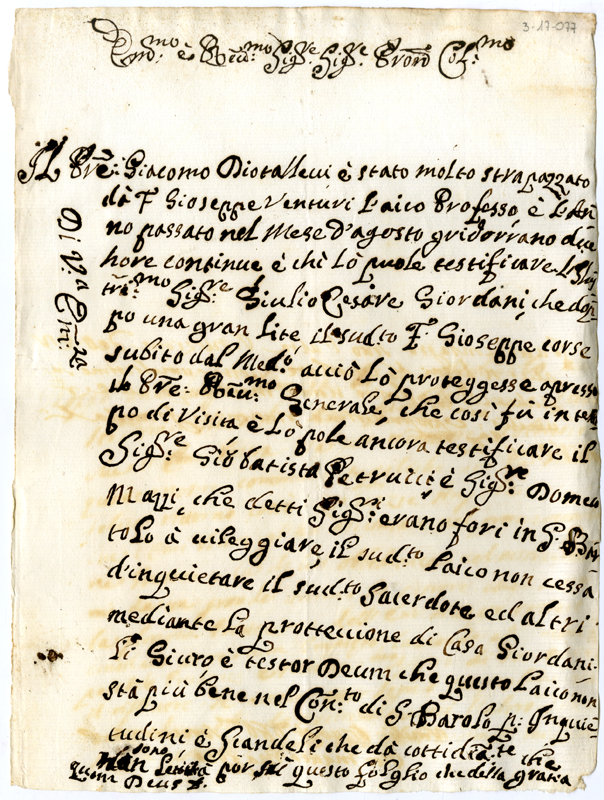 3-17-077
Em:mo è Reu:mo Sig:re Sig:re Pron Col:mo
Il Pre: Giacomo Diotalleui è stato molto strapazzato
dà F Gioseppe Venturi Laico Professo, è L'An
no passato nel Mese d'agosto gridorrano due
hore continue è chi Lò puole testificare L'Ill
tri:mo Sig:re Giulio Cesare Giordani, che dop
po una gran Lite il sudto F. Gioseppe corse
subito dal Med:o acciò Lò proteggesse apresso
il Pre: Reu:mo Generale, che così fù in tem
po di Visita è Lò pole ancora testificare il
Sig:re Giòbatista Petrucci è Sig:re Domeco
Mazzi, che detti Sig:ri erano fori in S. Bar
tolo à uileggiare, il sud:to Laico non cessà
d'inquietare il sud:to Sacerdote ed altri
mediante La protteccione di Casa Giordani
Li Giurò è testor Deum che questo Laico non
stà più bene nel Con:to di S. Barolo p: Inquie
tudini è Scandeli che dà cottidia:te che
sono
per questo foglio che della gratia
quom Deus
Di V:a Em:za